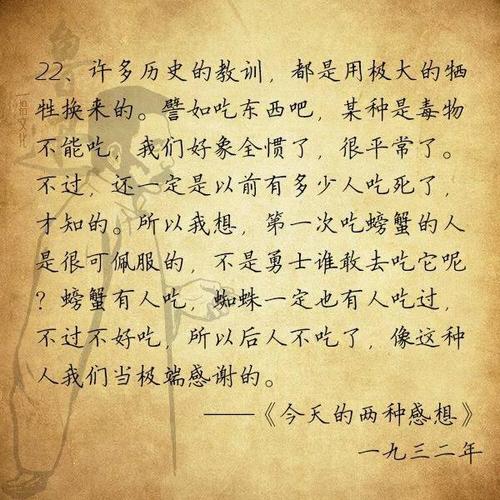 22、许多历史的教训，都是用极大的牺
牲换来的。譬如吃东西吧，某种是毒物
不能吃，我们好象全惯了，很平常了。
不过，还一定是以前有多少人吃死了，
才知的。所以我想，第一次吃螃蟹的人
是很可佩服的，不是勇士谁敢去吃它呢
？螃蟹有人吃，蜘蛛一定也有人吃过，
不过不好吃，所以后人不吃了，像这种
人我们当极端感谢的。
——《今天的两种感想》
一九三二年